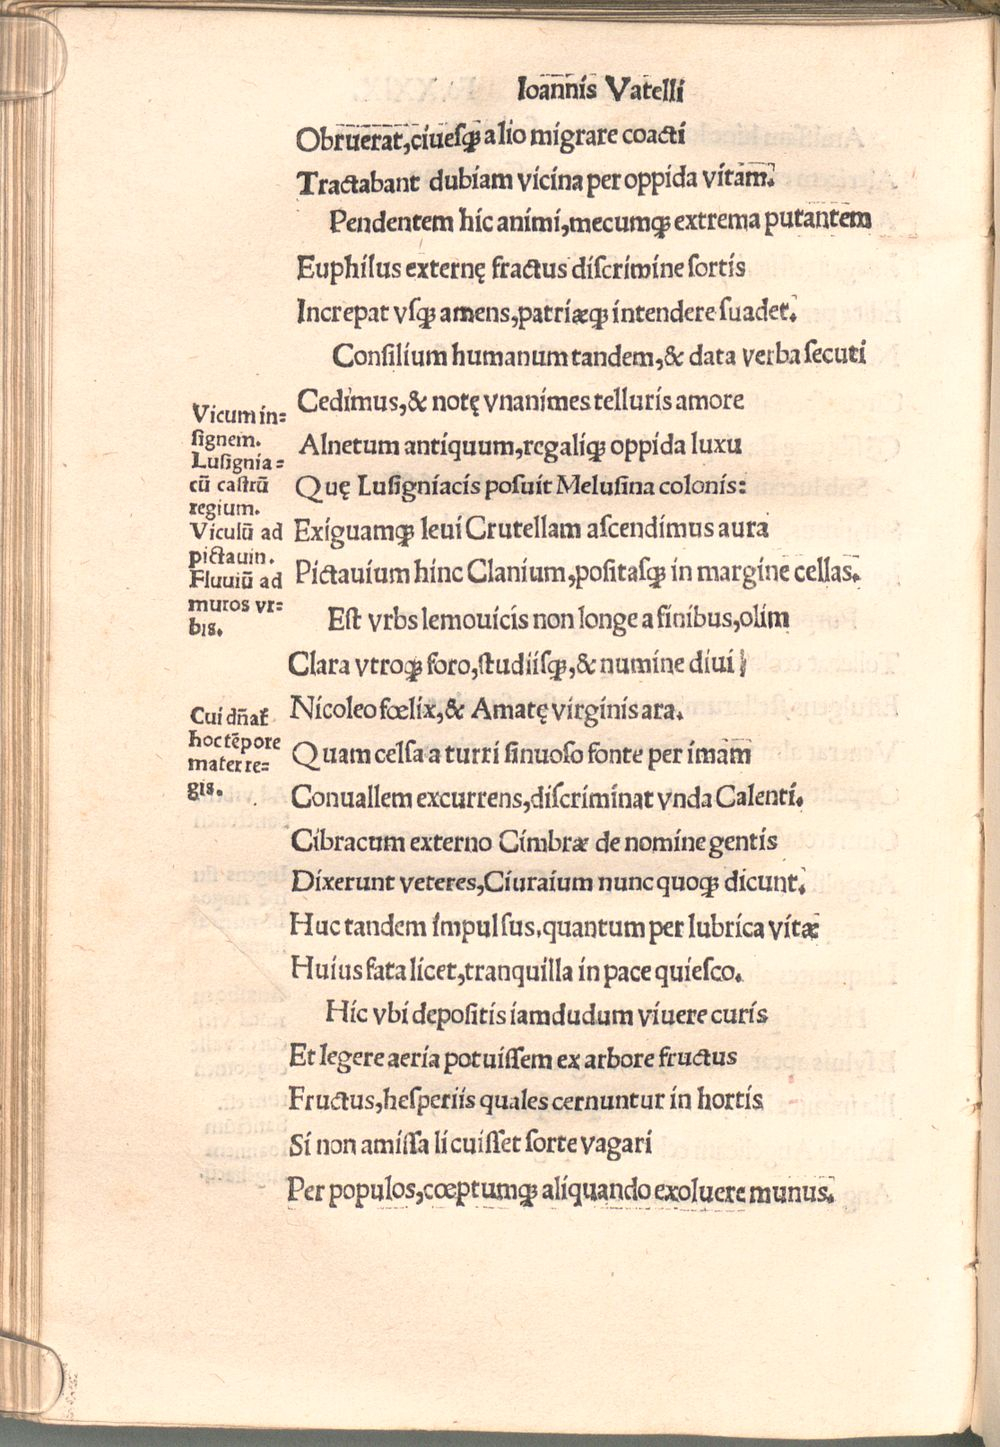 Ioannis Vatelli
Obruerat,ciuesqꝫ alio migrare coacti
Tractabant dubiam vicina per oppida vitam.
Pendentem hic animi,mecumqꝫ extrema putantem
Euphilus externę fractus discrimine sortis
Increpat vsqꝫ amens,patriæqꝫ intendere suadet.
Consilium humanum tandem,& data verba secuti
Cedimus,& notę vnanimes telluris amore
Alnetum antiquum,regaliqꝫ oppida luxu
Quę Lusigniacis posuit Melusina colonis:
Exiguamqꝫ leui Crutellam ascendimus aura
Pictauium hinc Clanium,positasqꝫ in margine cellas.
Est vrbs lemouicis non longe a finibus,olim
Clara vtroqꝫ foro,studiisqꝫ,& numine diui
Nicoleo fœlix,& Amatę virginis ara.
Quam celsa a turri sinuoso fonte per imam
Conuallem excurrens,discriminat vnda Calenti.
Cibracum externo Cimbræ de nomine gentis
Dixerunt veteres,Ciuraium nunc quoqꝫ dicunt.
Huc tandem impulsus,quantum per lubrica vitæ
Huius fata licet,tranquilla in pace quiesco.
Hic vbi depositis iamdudum viuere curis
Et legere aeria potuissem ex arbore fructus
Fructus,hesperiis quales cernuntur in hortis
Si non amissa licuisset sorte vagari
Per populos,cœptumqꝫ aliquando exoluere munus.
Vicum in=
signem.
Lusignia=
cū castrū
regium.
Viculū ad
pictauin.
Fluuiū ad
muros vr=
bis.
Cui dñat̃
hoc tēpore
mater re=
gis.